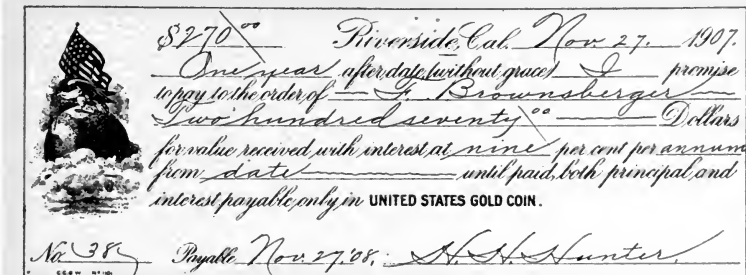 $270 00 Riverside, Cal. Nov 27. 1907.
One year after date, (without grace) I promise
to pay to the order of F. Brownsberger
Two hundred seventy 00 Dollars
for value received, with interest at nine per cent per annum
from date until paid, both principal and
interest payable only in UNITED STATES GOLD COIN.
No. 38 Payable Nov. 27. '08. H. H. Hunter.